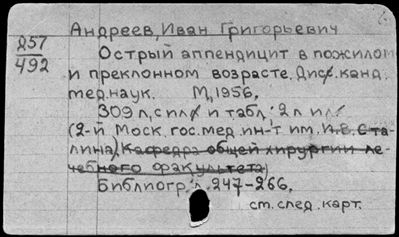 Андреев, Иван Григорьевич
257
492
Острый аппендицит в пожилом
и преклонном возрасте. Дис. канд.
мед. наук. М, 1956.
309 л, с ил и табл; 2 л ил
(2-й Моск. гос. мед. ин-т им. И. В. Ста-
лина). Кафедра общей хирургии ле-
чебного факультета)
Библиогр: л. 247-266.
см. след. карт.